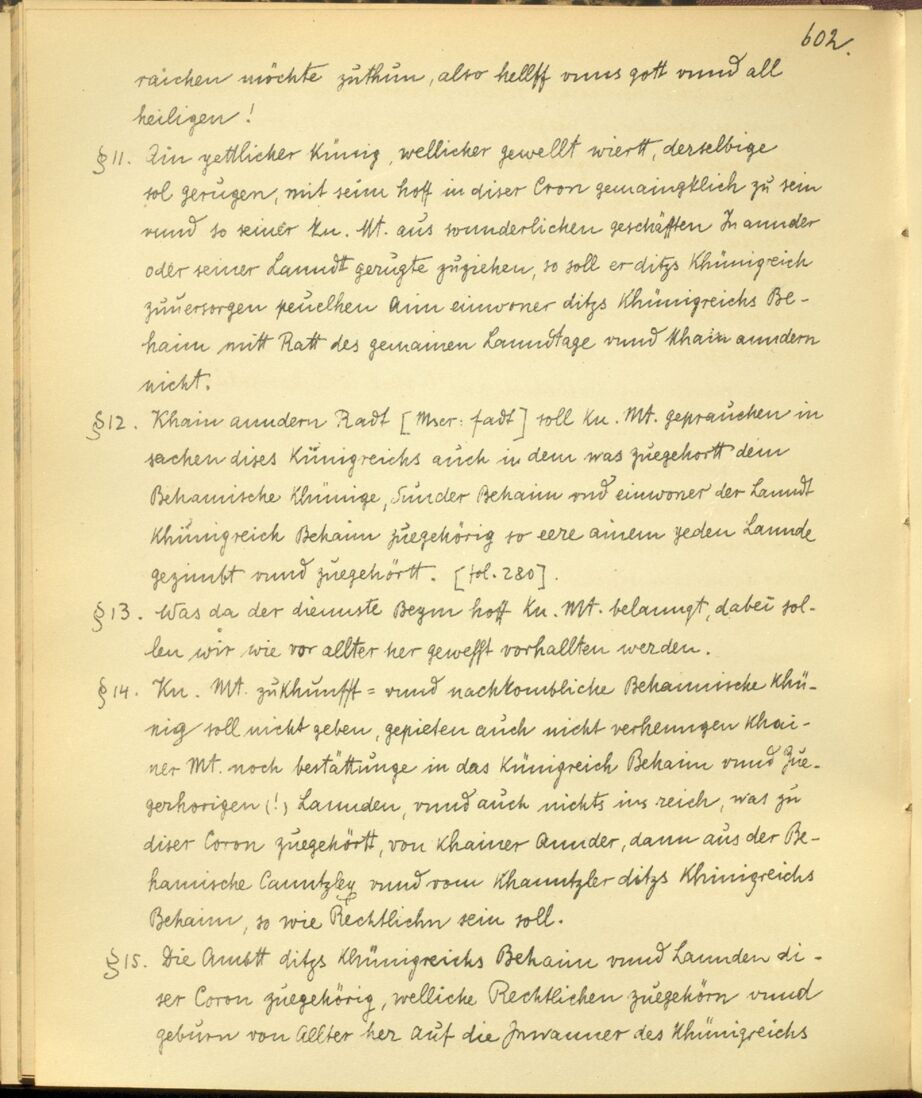 602.
raichen möchte zuthun, also hellff vnns gott vnnd all
heiligen!
§11. Ain yettlicher Künig, wellicher gewellt wiertt, derselbige
sol gerugen, mit seim hoff in diser Cron gemaingklich zu sein
vnnd so seiner Kn. Mt. aus sonnderlichen geschäfften In annder
oder seiner Lanndt gerugte zuziehen, so soll er ditzs Khünigreich
zuuersorgen peuelhen Ainn einwoner ditzs Khünigreichs Be-
haim mitt Ratt des gemainen Lanndtags vnnd Khain anndern
nicht.
§12. Khain anndern Radt [Mscr: fadt] soll Kn. Mt. geprauchen in
sachen dises Künigreichs auch in dem was zuegehortt dem
Behamische Khünige, Sunder Behaim vnd einwoner der Lanndt
Khünigreich Behaim zuegehörig so eere ainem yeden Lannde
gezimbt vnnd zuegehörtt. [fol. 280].
§13. Was da der diennste Bezm hoff Kn. Mt. belanngt, dabei sol-
len wir wie vor allter her gewefft vorhallten werden.
§14. Kn. Mt. zukhunfft= vnnd nachkombliche Behaimische Khü-
nig soll nicht geben, gepieten auch nicht verhenngen Khai-
ner Mt. noch bestättunge in das Künigreich Behaim vnnd Zue-
gerhorigen (!) Lannden, vnnd auch nichts ins reich, was zu
diser Coron zuegehörtt, von Khainer Annder, dann aus der Be-
hamische Canntzley vnnd vom Khanntzler ditzs Khinigreichs
Behaim, so wie Rechtlichn sein soll.
§15. Die Ambtt ditzs Khünigreichs Behaim vnnd Lannden di-
ser Coron zuegehörig, welliche Rechtlichen zuegehörn vnnd
geburn von Allter her auf die Innwanner des Khünigreichs